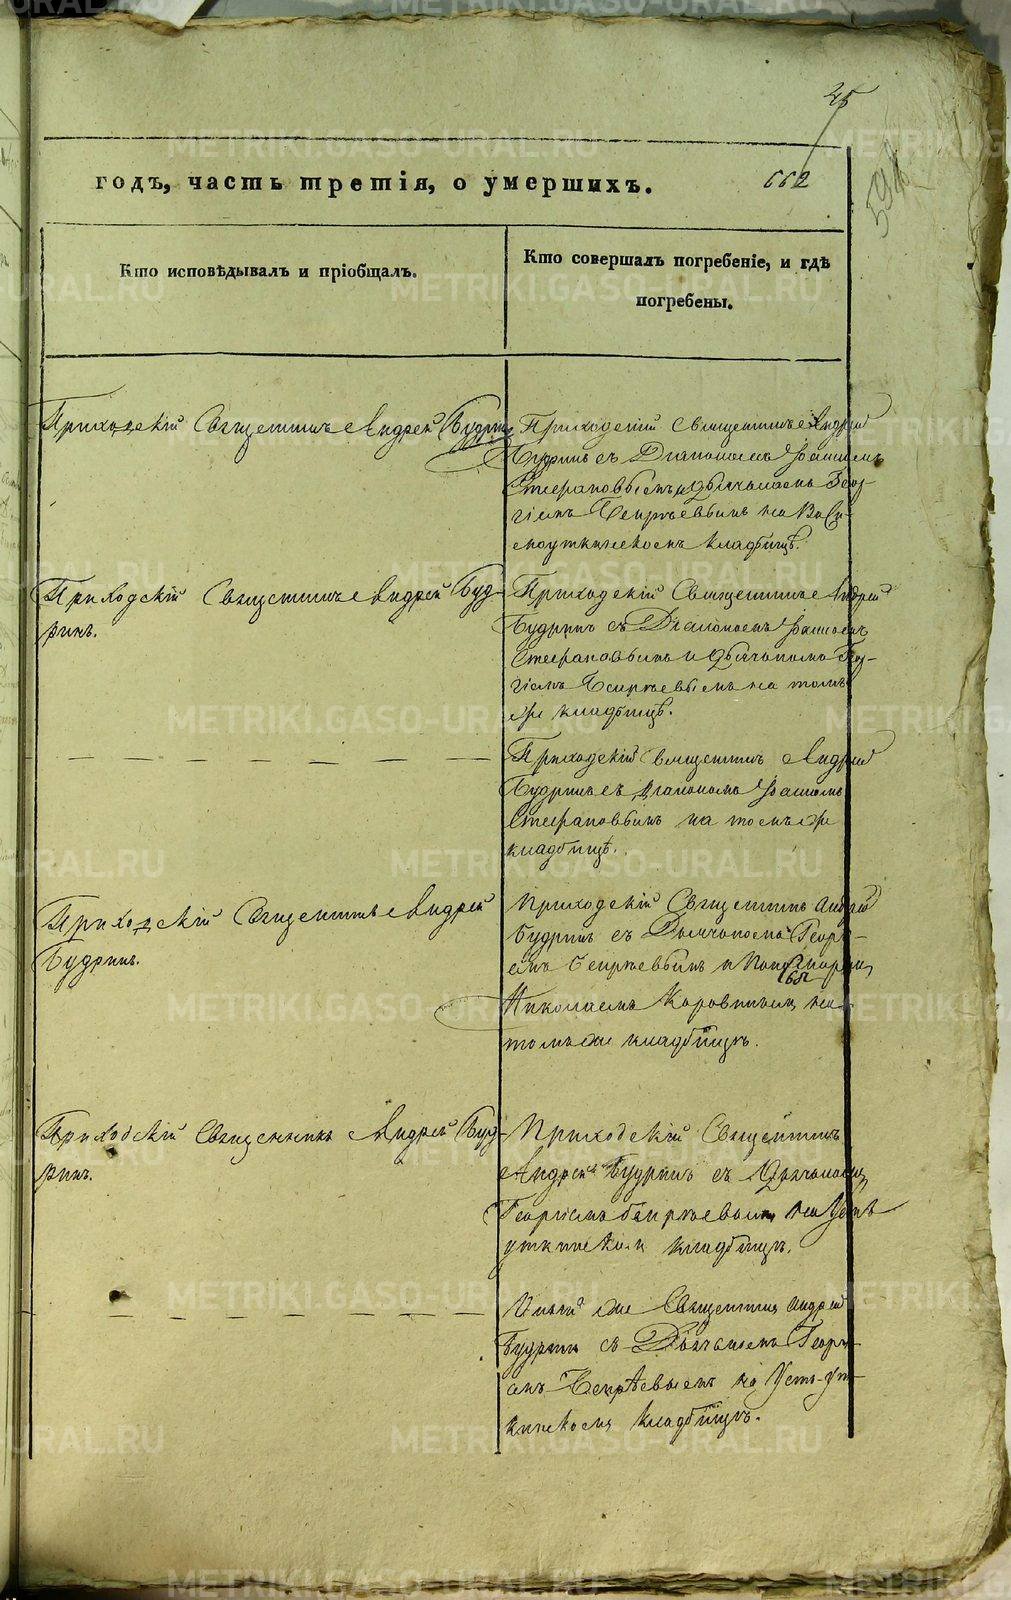 25
годъ, часть третія, о умершихъ.
662
59
Кто исповѣдывалъ и пріобщалъ.
Кто совершалъ погребеніе, и гдѣ
погребены.
Приходскій Священникъ Андрей Будринъ
Приходскій Священникъ Андрей
Будринъ съ Діакономъ
Стефановымъ и Дьячькомъ Геор-
гіемъ на
кладбищѣ.
Приходскій Священникъ Андрей Буд-
ринъ.
Приходскій Священникъ Андрей
Будринъ съ Діакономъ
Стефановымъ и Дьячькомъ Геор-
гіемъ на томъ
же кладбищѣ.
Приходскій Священникъ Андрей
Будринъ съ Діакономъ
Стефановымъ на томъ же
кладбищѣ.
Приходскій Священникъ Андрей
Будринъ.
Приходскій Священникъ Андрей
Будринъ съ Дьячькомъ Георгі-
емъ и
Николаемъ Коровинымъ на
томъ же кладбищѣ.
Приходскій Священникъ Андрей Буд-
ринъ.
Приходскій Священникъ
Андрей Будринъ съ Дьячькомъ
Георгіемъ на Усть
уткинскомъ кладбищѣ.
же Священникъ Андрей
Будринъ съ Дьячькомъ Георгі-
емъ на Усть-Ут-
кинскомъ кладбищѣ.
METRIKI.GASO-URAL.RU